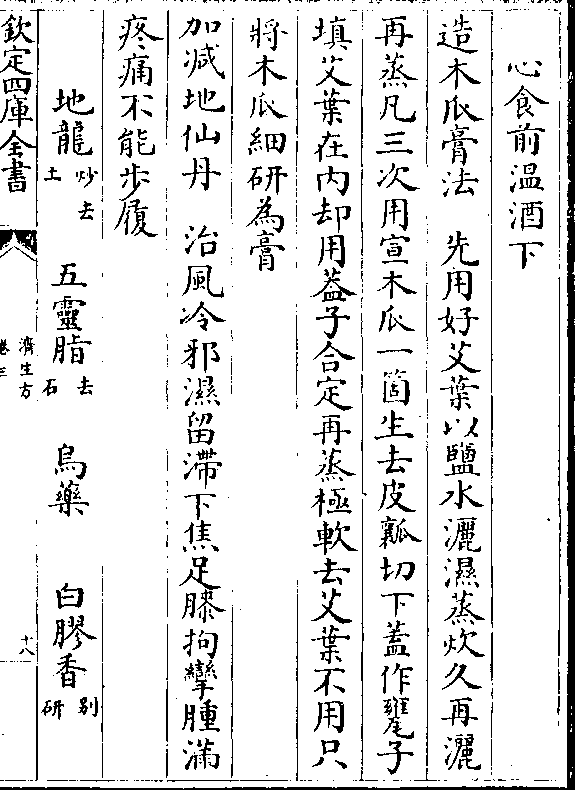 心食前温酒下
造木瓜膏法　先用好艾葉以鹽水灑濕蒸炊久再灑
再蒸凡三次用宣木瓜一箇生去皮瓤切下蓋作甕子
填艾葉在内却用葢子合定再蒸極軟去艾葉不用只
將木瓜細研為膏
加減地仙丹　治風冷邪濕留滯下焦足膝拘攣腫滿
疼痛不能步履
地龍炒去土　五靈脂去石　烏藥　白膠香别研
欽定四庫全書
濟生方
卷三
十八